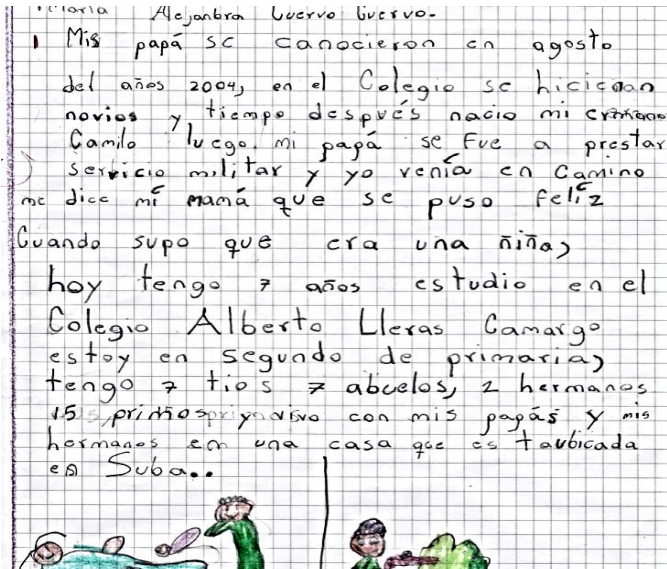 Maria Alejanbra Cuervo Cuervo-
1 Mis papá se canocieron en agosto
del años 2004, en el Colegio se hicieoan
novios y, tiempo después nacio mi
Camilo luego. mi papá se fue a prestar
servicio militar y yo venía en camino
me dice mí mamá que se puso felíz
Cuando supo que era una niña,
hoy tengo 7 años estudio en el
Colegio Alberto Lleras Camargo
estoy en segundo de primaria,
tengo 7 tios 7 abuelos, 2 hermanos
15 primos y vivo con mis papás y mis
hermanos em una casa que es taubicada
en Suba..